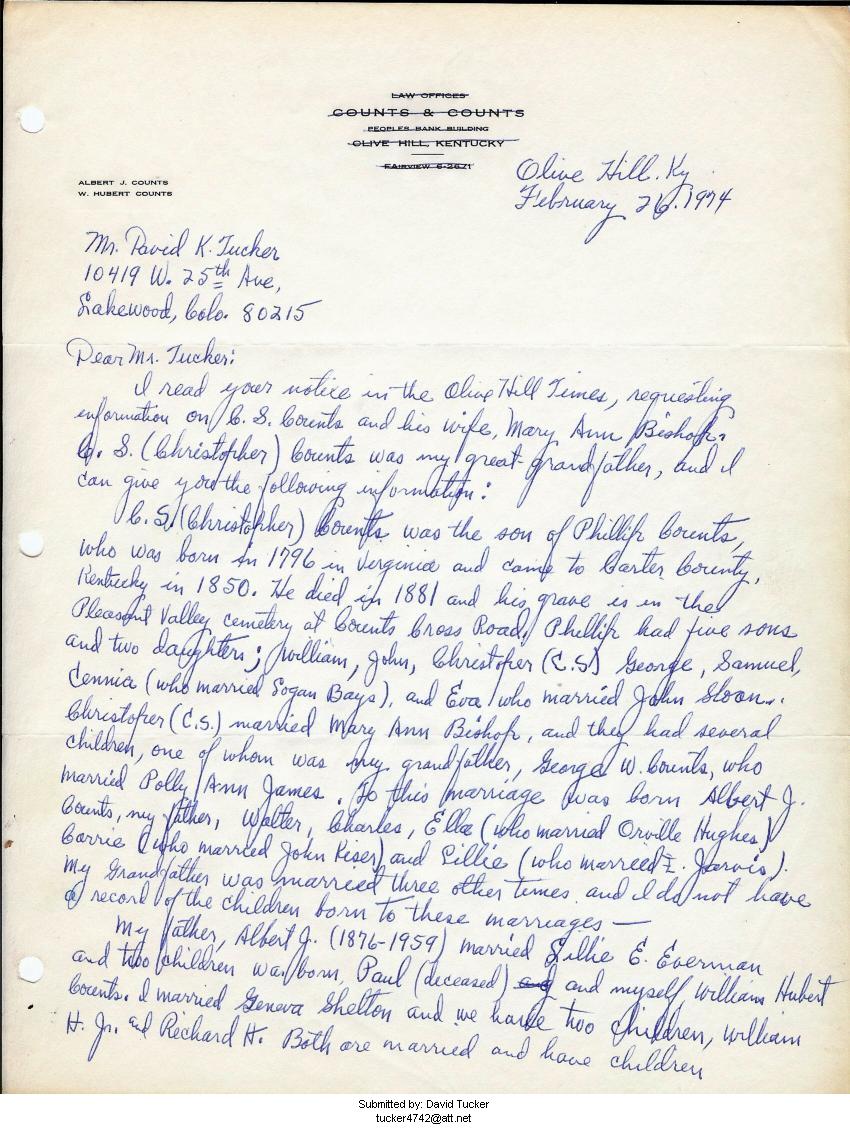 LAW OFFICES
COUNTS & COUNTS
PEOPLES BANK BUILDING
OLIVE HILL, KENTUCKY
FAIRVIEW 6-2671
ALBERT J. COUNTS
W. HUBERT COUNTS
Olive Hill. Ky.
February 26. 1974
Mr. David K. Tucker
10419 W. 25th Ave,
Lakewood, Colo. 80215
Dear Mr. Tucker:
I read your notice in the Olive Hill Times, requesting
information on C. S. Counts and his wife, Mary Ann Bishop.
C. S. (Christopher) Counts was my great-grandfather, and I
can give you the following information:
C. S. (Christopher) Counts was the son of Phillip Counts,
who was born in 1796 in Virginia and came to Carter County,
Kentucky in 1850. He died in 1881 and his grave is in the
Pleasant Valley cemetery at Counts Cross Road. Phillip had five sons
and two daughters; William, John, Christofer (C.S.) George, Samuel,
Cennia (who married Logan Bays), and Eva who married John Sloan.
Christofer (C.S.) married Mary Ann Bishop, and they had several
children, one of whom was my grandfather, George W. Counts, who
married Polly Ann James. To this marriage was born Albert J.
Counts, my father, Walter, Charles, Ella (who married Orville Hughes)
Carrie (who married John Kiser) and Lillie (who married Z. Jarvis).
My Grandfather was married three other times and I do not have
a record of the children born to these marriages —
My father, Albert J. (1876-1959) married Lillie E. Everman
and two children was born, Paul (deceased) and and myself, William Hubert
Counts. I married Geneva Shelton and we have two children, William
H. Jr. and Richard H. Both are married and have children
Submitted by: David Tucker
tucker4742@att.net